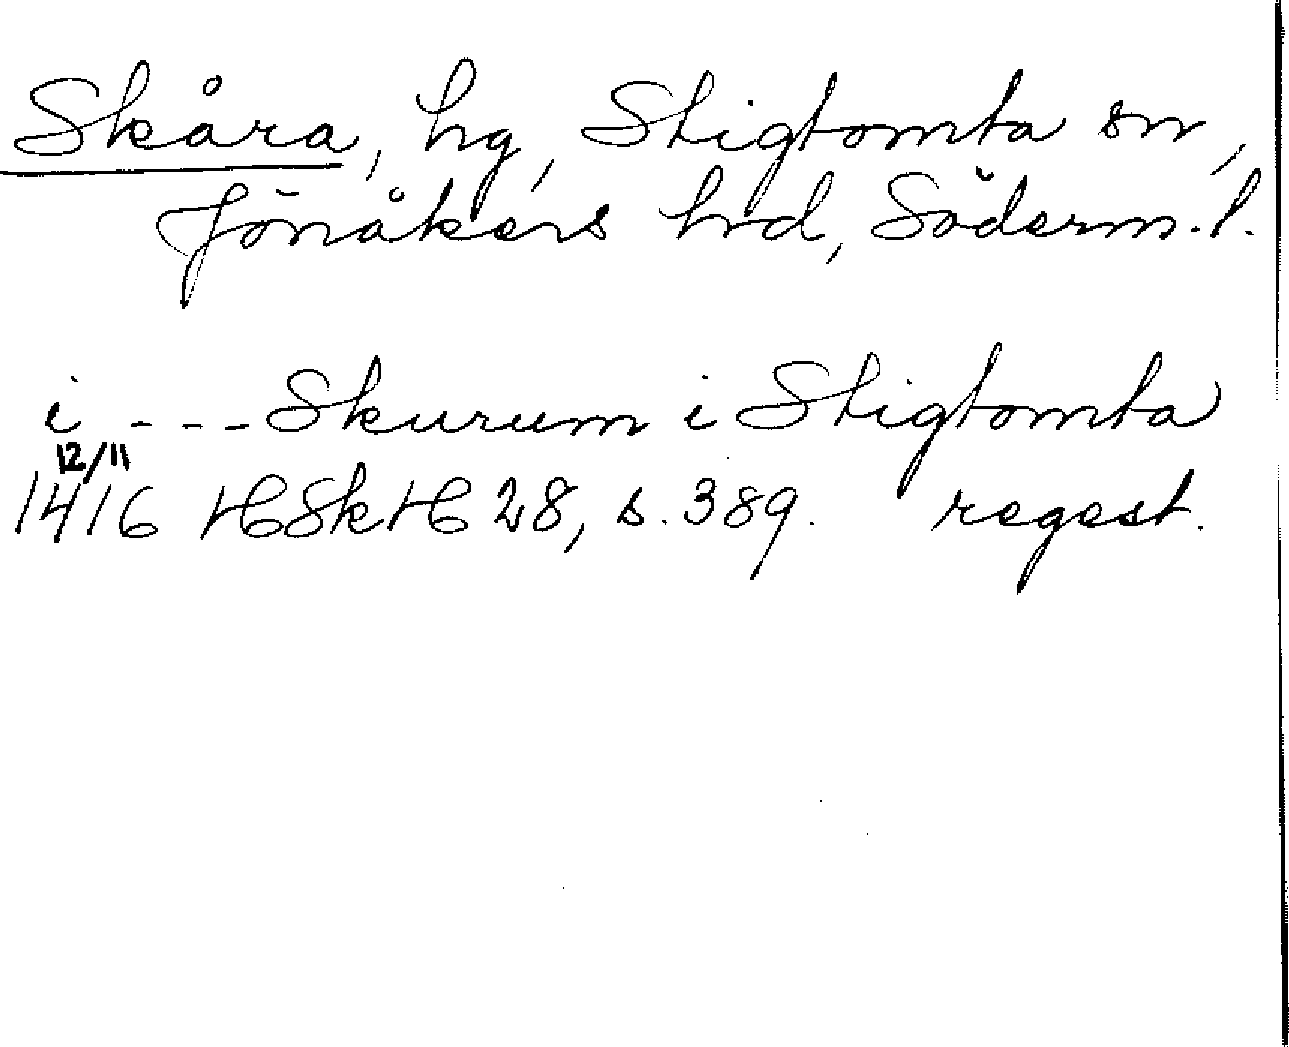 Skåra, hg, Stigtomta sn,
Jönåkers hrd, Söderm. l.
i --- Skurum i Stigtomta
12/11
1416 HSkH 28, s. 389. regest.